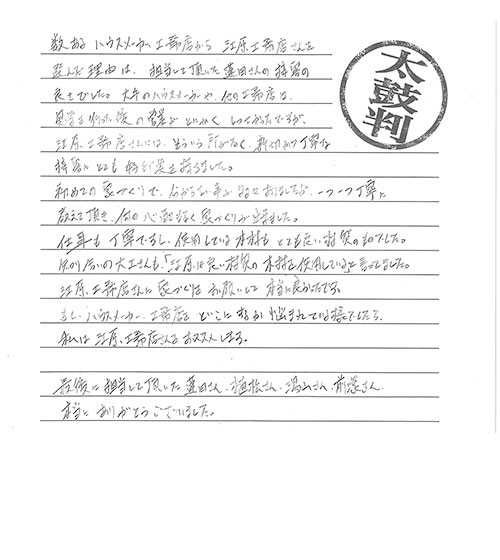 数あるハウスメーカー、工務店から江原工務店さんを
選んだ理由は、担当して頂いた蓮田さんの接客の
良さでした。大手のハウスメーカーや、他の工務店は、
見学も物件後の営業がとにかくしつこかったですが、
江原工務店さんは、そういう所がなく、親切かつ丁寧な
接客にとても好印象を持ちました。
初めての家づくりで、分からない事が多々ありましたが、一つ一つ丁寧に
教えて頂き、何の心配もなく家づくりが出来ました。
仕事も丁寧ですし、使用している木材もとても良い材質のものでした。
知り合いの大工さんも、「江原は良い材質の木材を使用している」と言ってました。
江原工務店さんに家づくりをお願いして本当に良かったです。
もし、ハウスメーカー、工務店をどこにするか悩まれている様でしたら、
私は江原工務店さんをおススメします。
最後に担当して頂いた蓮田さん、植松さん、湯山さん、前塚さん、
本当にありがとうございました。
太鼓判